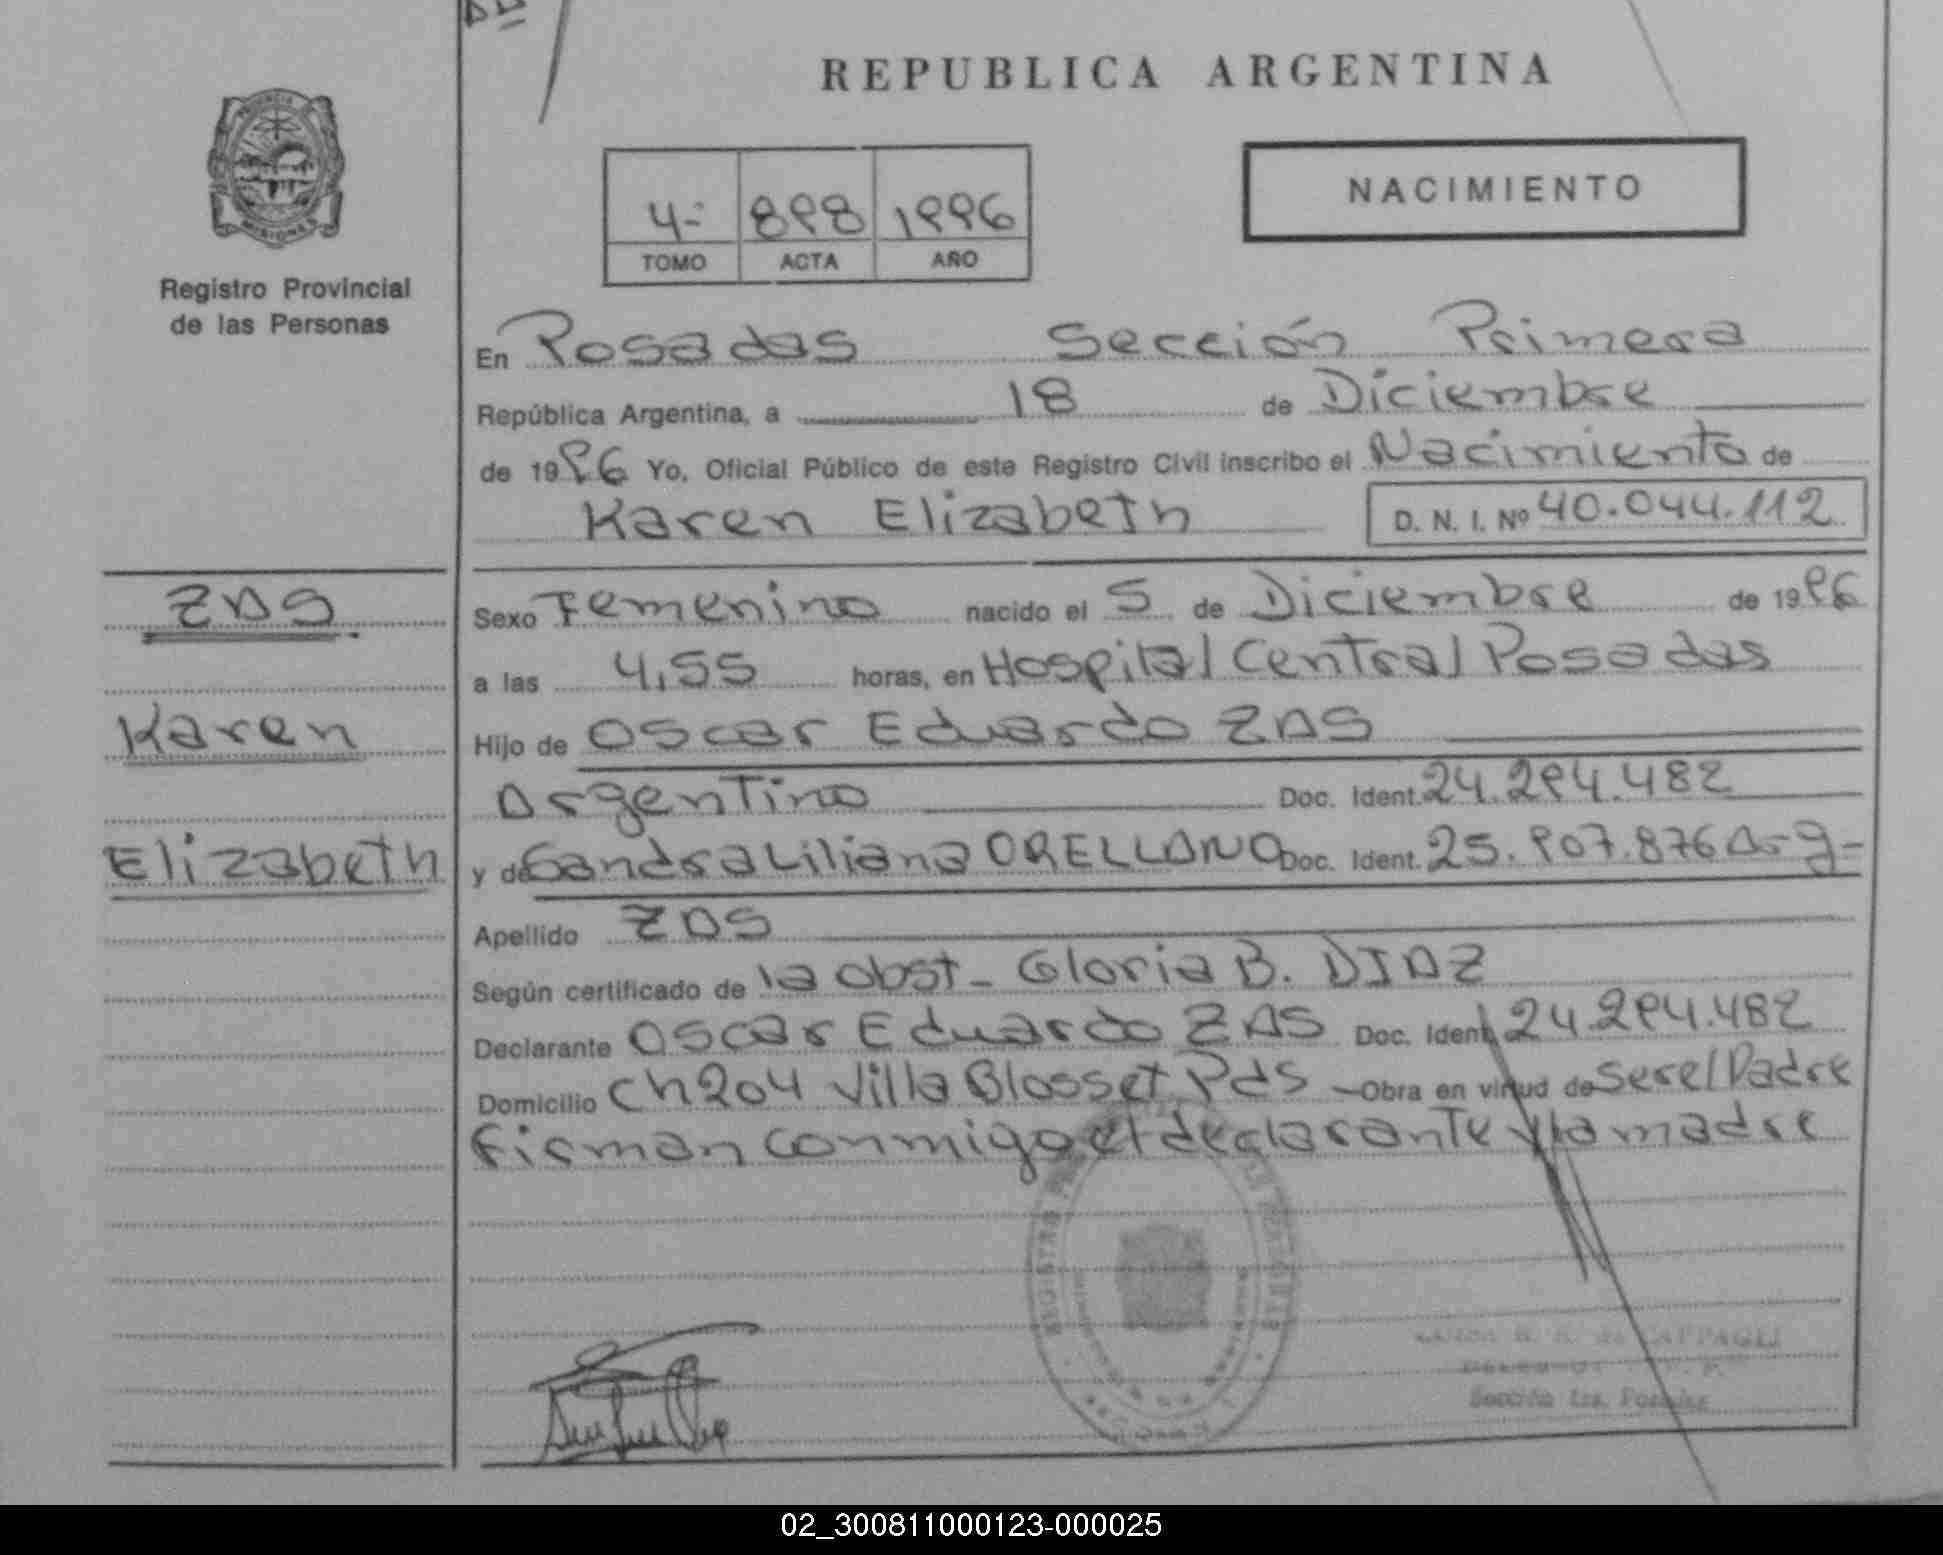 REPUBLICA ARGENTINA
PROVINCIA
MISIONES
Registro Provincial
de las Personas
4- 898 1996
TOMO ACTA AÑO
NACIMIENTO
En Posadas Sección Primera
República Argentina, a 18 de Diciembre
de 1996 Yo, Oficial Público de este Registro Civil inscribo el Nacimiento de
Karen Elizabeth D. N. I. Nº 40.044.112
ZAS
Karen
Elizabeth
Sexo Femenino nacido el 5 de Diciembre de 1996
a las 4,55 horas, en Hospital Central Posadas
Hijo de Oscar Eduardo ZAS
Argentino Doc. Ident. 24.294.482
y de Sandra Liliana ORELLANO Doc. Ident. 25.907.876 Arg-
Apellido ZAS
Según certificado de la Obst- Gloria B. DIAZ
Declarante Oscar Eduardo ZAS Doc. Ident. 24.294.482
Domicilio Ch 204 Villa Blosset Pds - Obra en virtud de ser el Padre
Firman conmigo el declarante y la madre
CAPPAGLI
Sección 1ra. Posadas
02_300811000123-000025